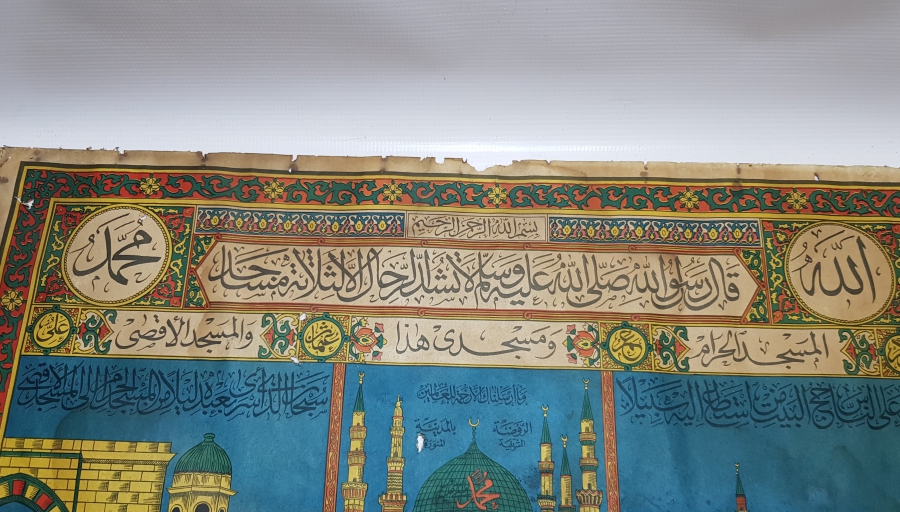 بسم الله الرحمن الرحيم
الله
قال رسول الله صلى الله عليه وسلم لا تشد الرحال الا لثلاثة مساجد
محمد
المسجد الحرام
عمر
ومسجدى هذا
عثمان
والمسجد الأقصى
على
على الناس حج البيت من استطاع إليه سبيلا
وما أرسلناك إلا رحمة للعالمين
الروضة الشريفة
بالمدينة المنورة
محمد
سبحان الذى أسرى بعبده ليلا من المسجد الحرام إلى المسجد الأقصى